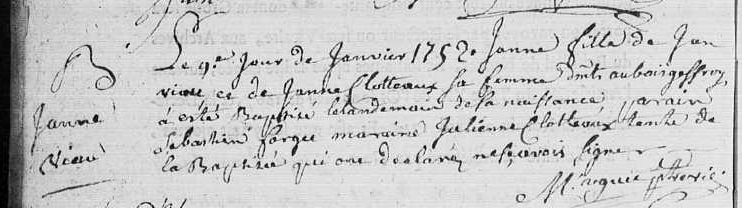 B
Janne
Viau
Le 9e Jour de Janvier 1752 Janne fille de Jan
viau et de Janne Clotteaux sa femme dmts au bourgeffroy
a été Baptisé le landemain de sa naissance parain
Sebastien forget maraine Julienne Clotteaux tente de
la Baptisée qui ont déclarez ne sçavoir signer